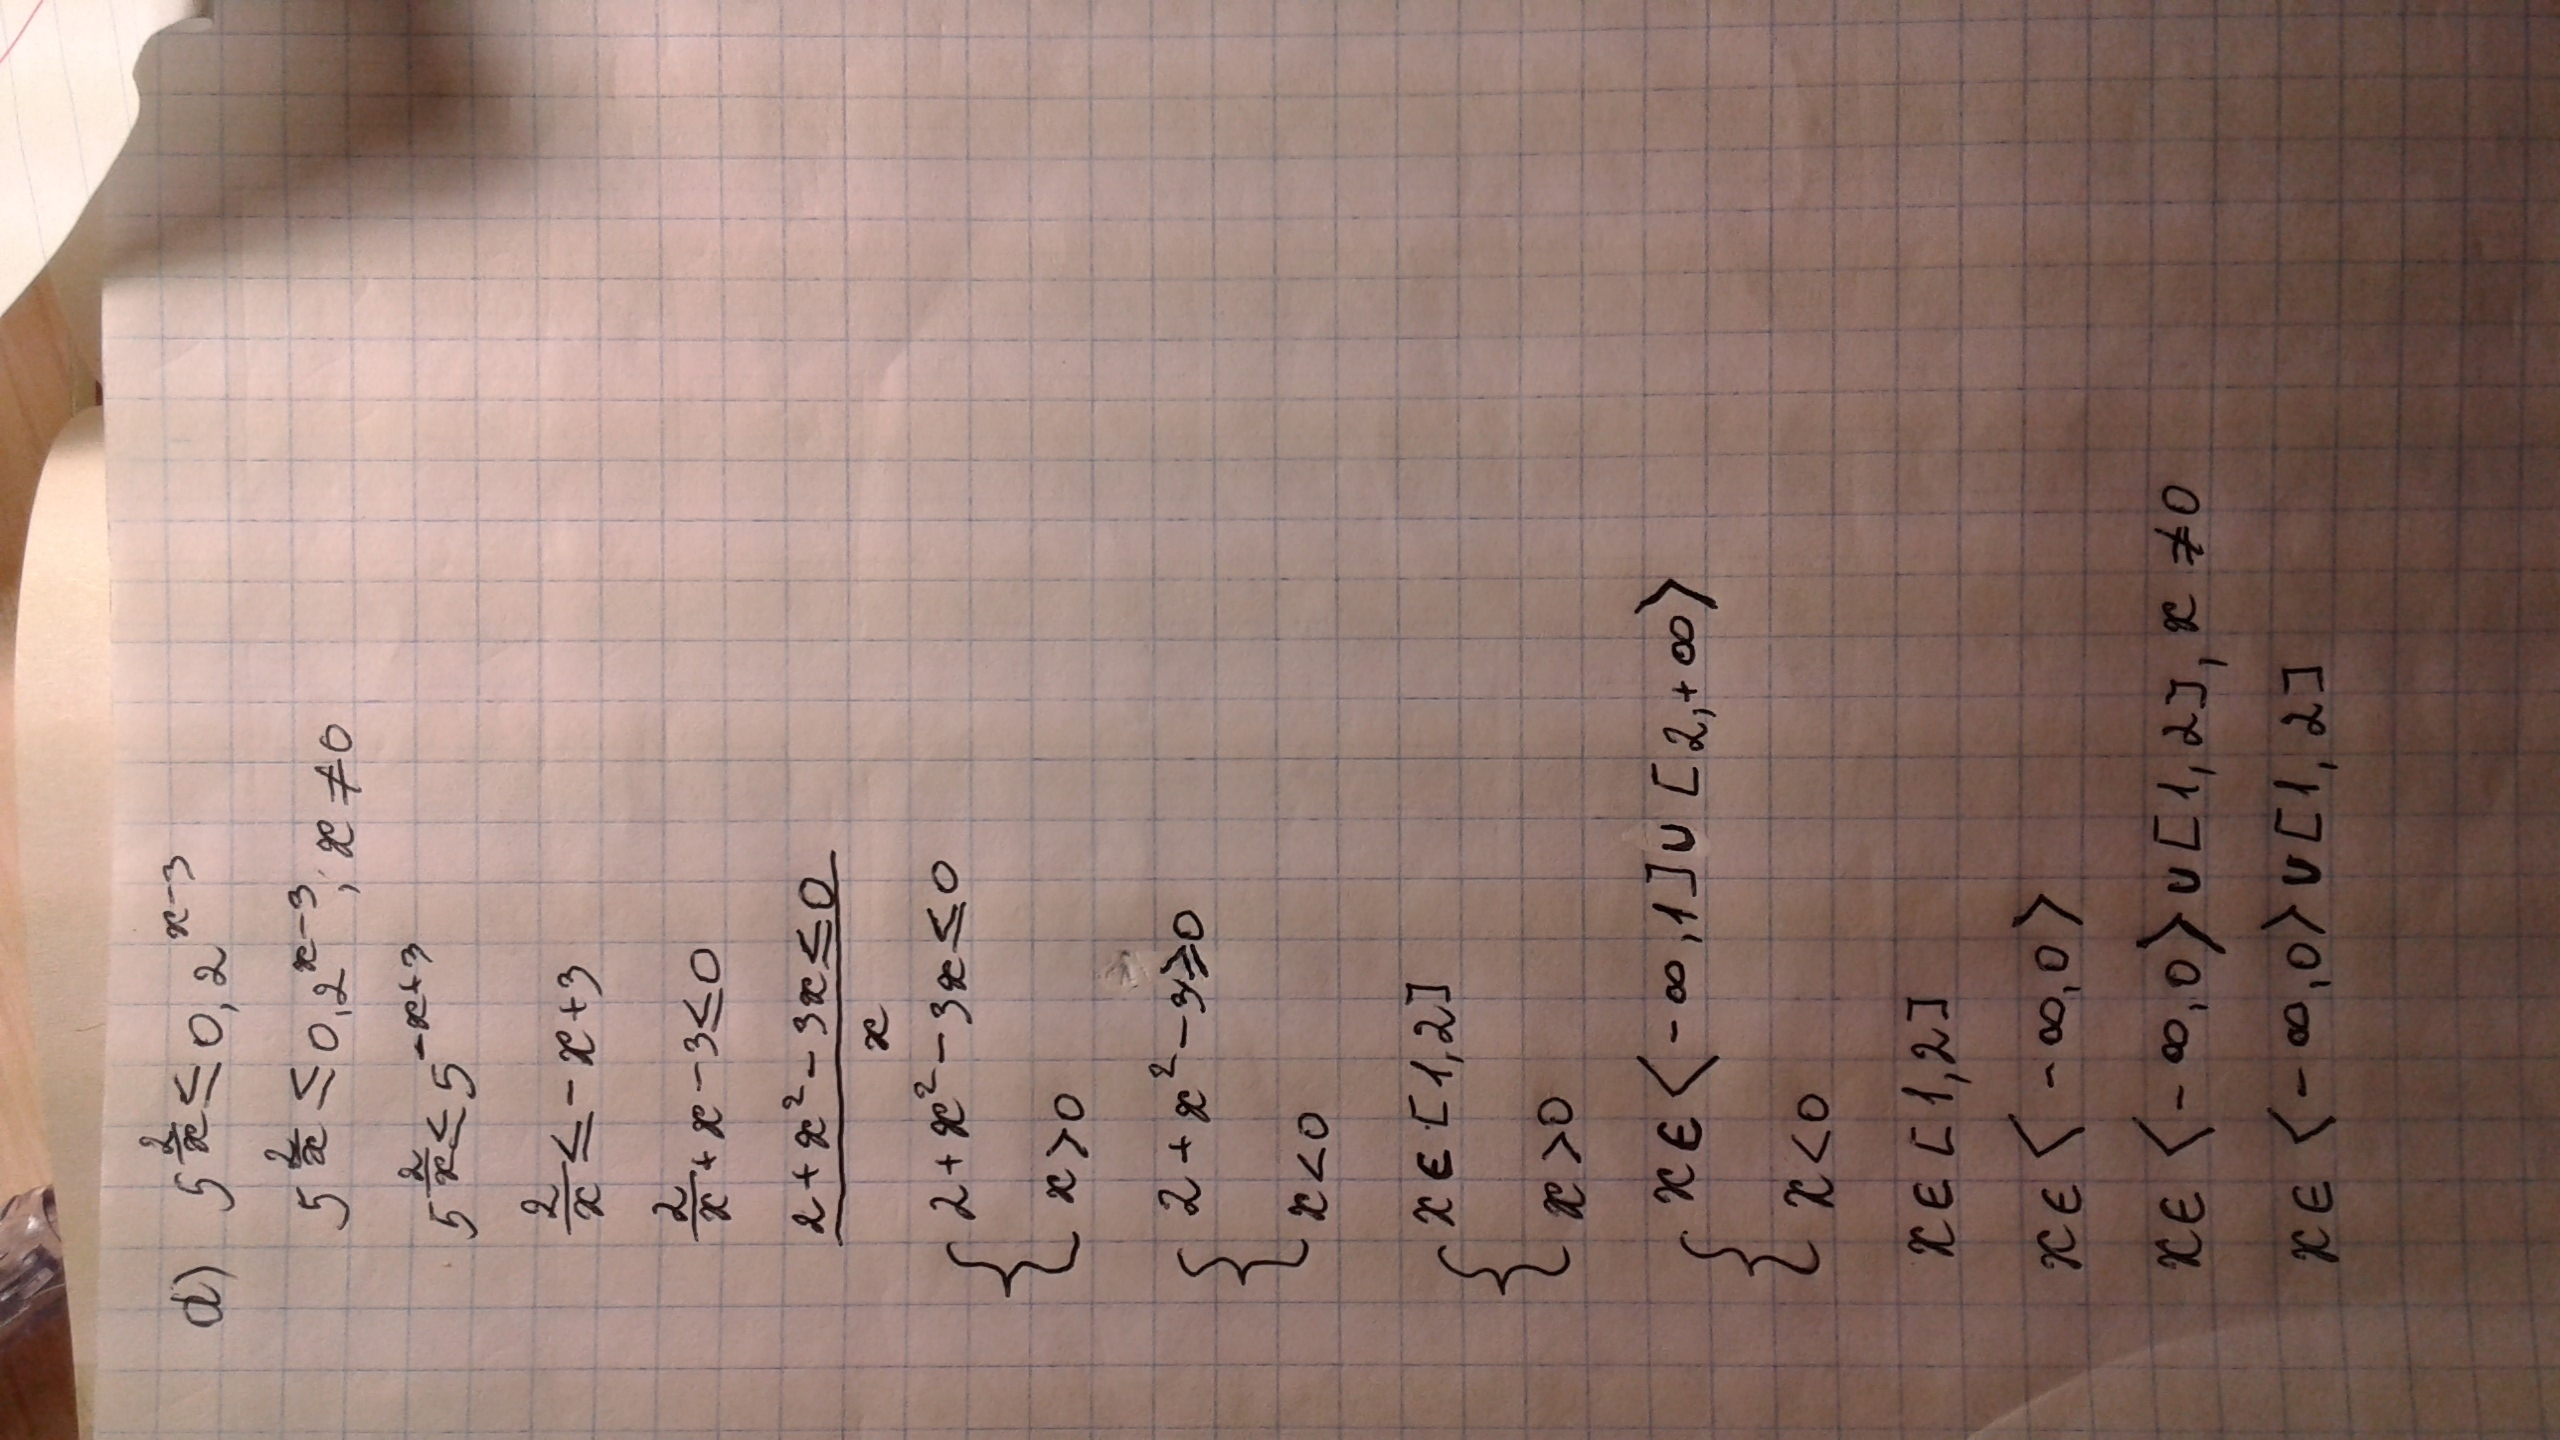 а) 5^(2/x) ≤ 0,2^(x-3)
5^(2/x) ≤ 0,2^(x-3), x ≠ 0
5^(2/x) ≤ 5^(-x+3)
2/x ≤ -x+3
2/x + x - 3 ≤ 0
(2 + x² - 3x ≤ 0)/x
{ 2 + x² - 3x ≤ 0
x > 0
{ 2 + x² - 3 ≥ 0
x < 0
{ x ∈ [1,2]
x > 0
{ x ∈ ⟨-∞,1] ∪ [2,+∞⟩
x < 0
x ∈ [1,2]
x ∈ ⟨-∞,0⟩
x ∈ ⟨-∞,0⟩ ∪ [1,2], x ≠ 0
x ∈ ⟨-∞,0⟩ ∪ [1,2]